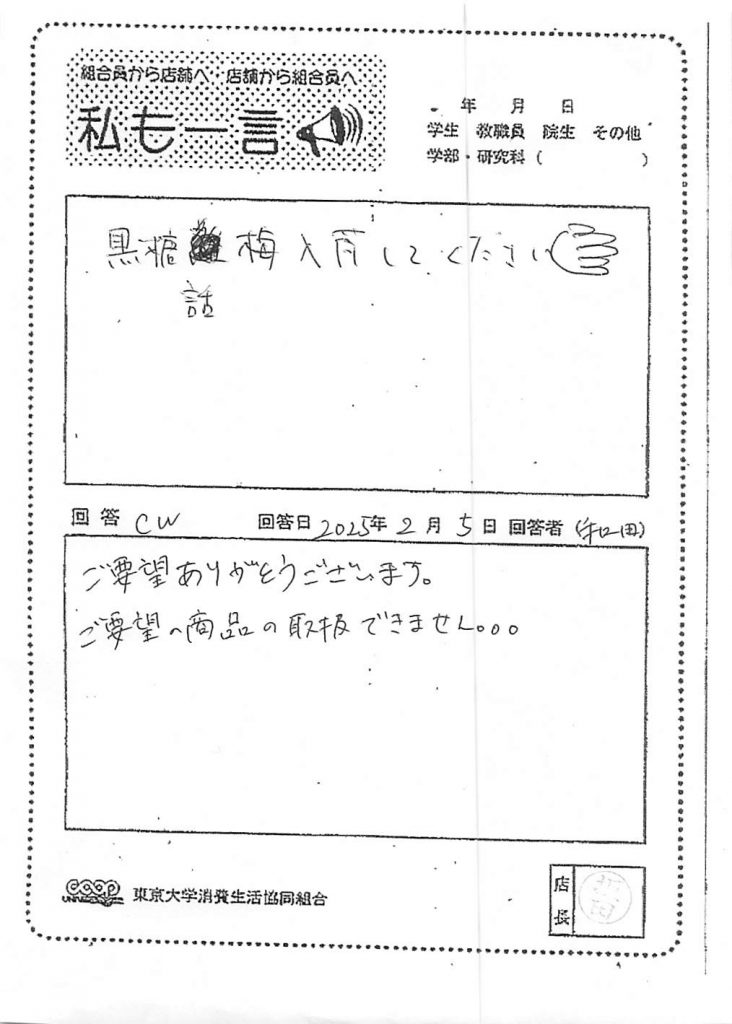 組合員から店舗へ・店舗から組合員へ
私も一言
年 月 日
学生 教職員 院生 その他
学部・研究科( )
黒糖 梅入荷してください
話
回答 CW 回答日 2025年2月5日 回答者(和田)
ご要望ありがとうございます。
ご要望の商品の取扱できません。。。
coop 東京大学消費生活協同組合
店長